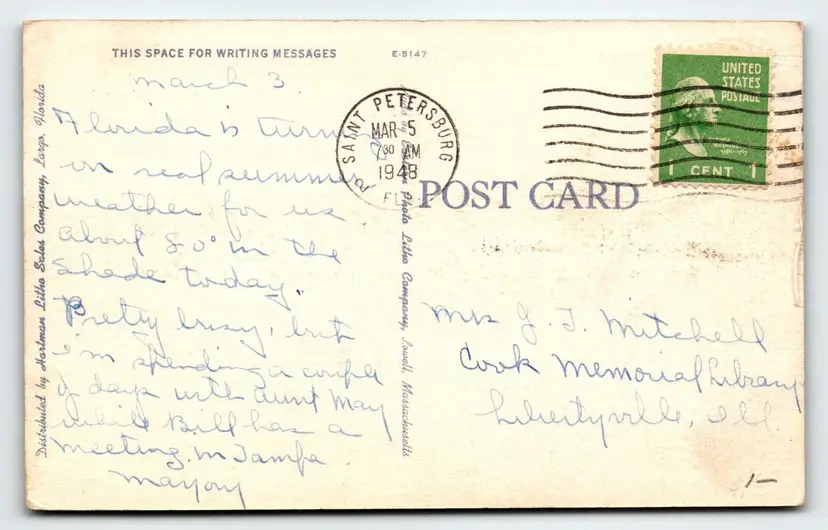 THIS SPACE FOR WRITING MESSAGES
E-5147
March 3.
Florida is turning
on real summer
weather for us
about 80° in the
shade today.
Pretty busy, but
I'm spending a couple
of days with Aunt May
while Bill has a
meeting in Tampa.
Marjory
Distributed by Hartman Litho Sales Company, Largo, Florida
Photo Litho Company, Lowell, Massachusetts
SAINT PETERSBURG
MAR 5
7 30 AM
1948
FLA
UNITED
STATES
POSTAGE
1 CENT 1
POST CARD
Mrs J. T. Mitchell
Cook Memorial Library
Libertyville, Ill.
1-